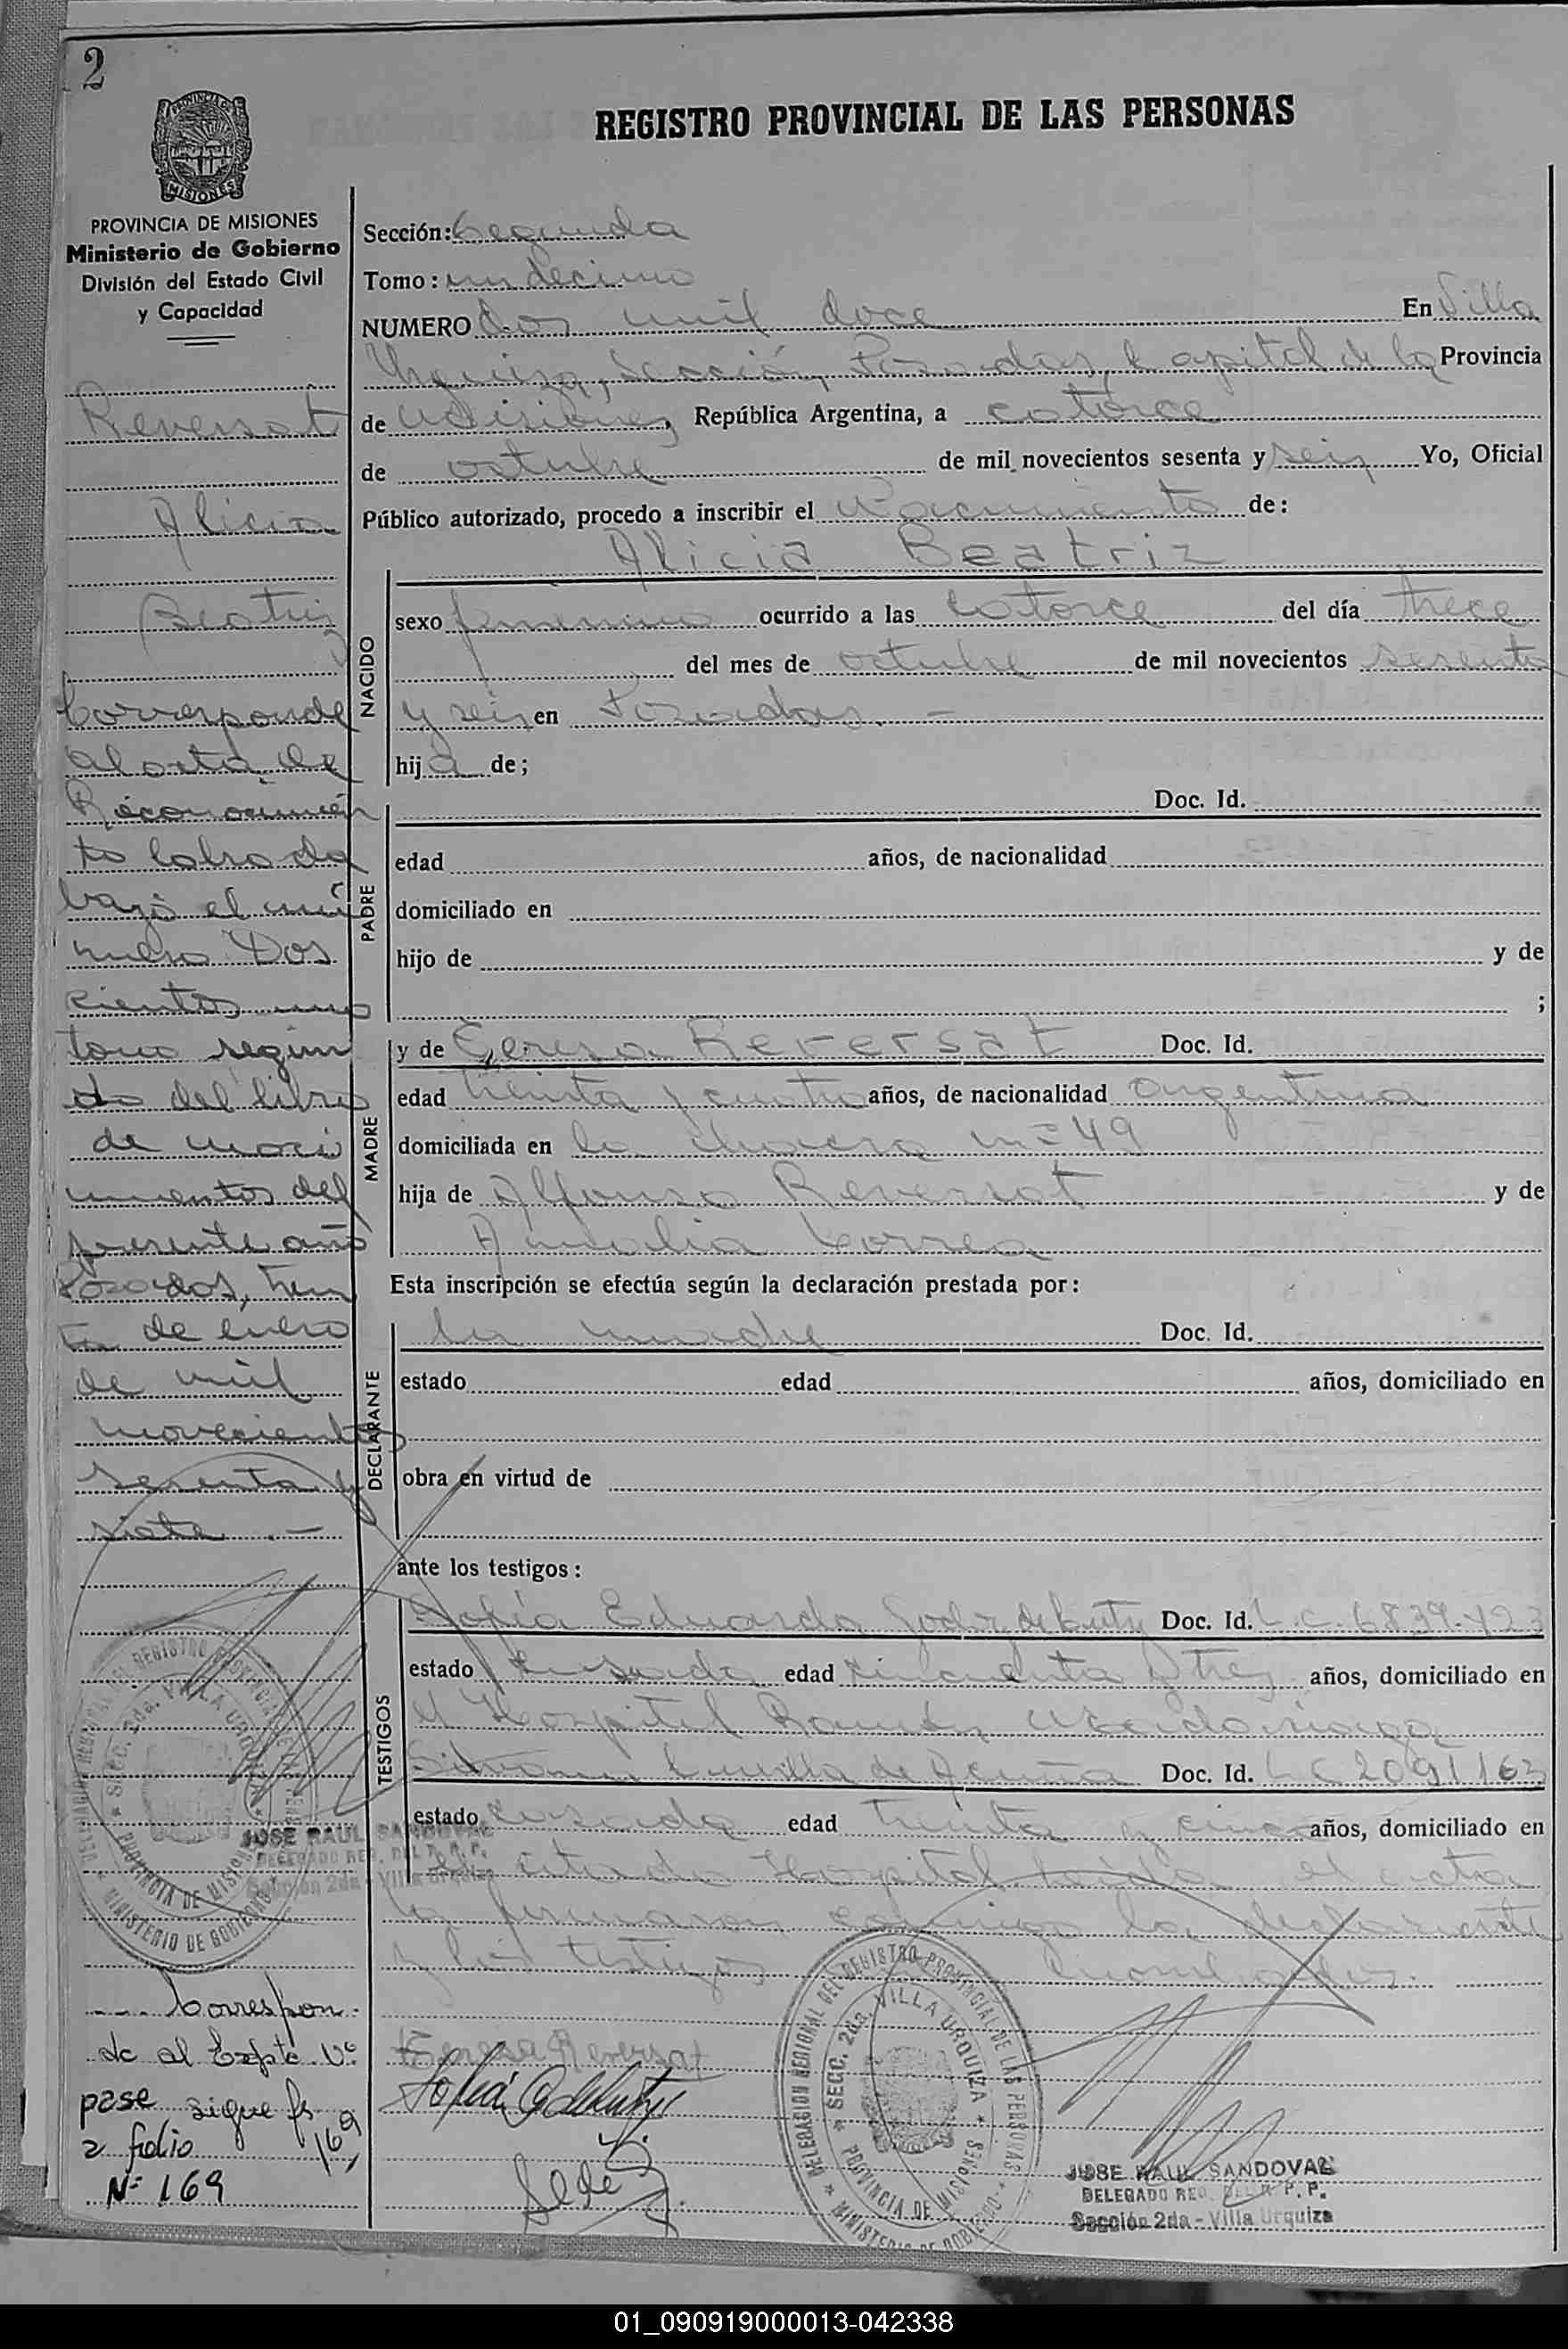 2
REGISTRO PROVINCIAL DE LAS PERSONAS
PROVINCIA DE MISIONES
MISIONES
PROVINCIA DE MISIONES
Ministerio de Gobierno
División del Estado Civil
y Capacidad
Reversat
Alicia
Beatriz
Corresponde
al acta de
Reconocimien
to labrada
bajo el nú
mero Dos
cientos uno
tomo segun
do del libro
de naci
mientos del
presente año
Posadas, trein
ta de enero
de mil
novecientos
sesenta y
siete.-
Sección: Segunda
Tomo: undécimo
NUMERO dos mil doce En Villa
Urquiza, Sección, Posadas, Capital de la Provincia
de Misiones, República Argentina, a catorce
de octubre de mil novecientos sesenta y seis Yo, Oficial
Público autorizado, procedo a inscribir el Nacimiento de:
Alicia Beatriz
NACIDO
sexo femenino ocurrido a las catorce del día trece
del mes de octubre de mil novecientos sesenta
y seis en Posadas. -
hija de;
PADRE
Doc. Id.
edad años, de nacionalidad
domiciliado en
hijo de y de
;
MADRE
y de Teresa Reversat Doc. Id.
edad treinta y cuatro años, de nacionalidad argentina
domiciliada en la chacra nº 49
hija de Alfonso Reversat y de
Amalia Correa
Esta inscripción se efectúa según la declaración prestada por:
DECLARANTE
la madre Doc. Id.
estado edad años, domiciliado en
obra en virtud de
ante los testigos:
TESTIGOS
Sofía Eduarda de Doc. Id. L.C. 6839.423
estado casada edad cincuenta y tres años, domiciliado en
el Hospital Ramón Madariaga
Cunilla de Acuña Doc. Id. L C 2091163
estado casada edad treinta y cinco años, domiciliado en
el citado Hospital Leída el acta
la firmaron conmigo la declarante
y los testigos nombrados.
Teresa Reversat
DELEGACION REGIONAL DEL REGISTRO PROVINCIAL DE LAS PERSONAS
SECC. 2da. VILLA URQUIZA
PROVINCIA DE MISIONES
MINISTERIO DE GOBIERNO
JOSE RAUL SANDOVAL
DELEGADO REG. DEL R. P. P.
Sección 2da - Villa Urquiza
DELEGACION REGIONAL DEL REGISTRO PROVINCIAL DE LAS PERSONAS
SECC. 2da. VILLA URQUIZA
PROVINCIA DE MISIONES
MINISTERIO DE GOBIERNO
JOSE RAUL SANDOVAL
DELEGADO REG. DEL R. P. P.
Sección 2da - Villa Urquiza
Correspon-
de al Expte. Nº
pase sigue fs.
a folio 169
Nº 169
01_090919000013-042338